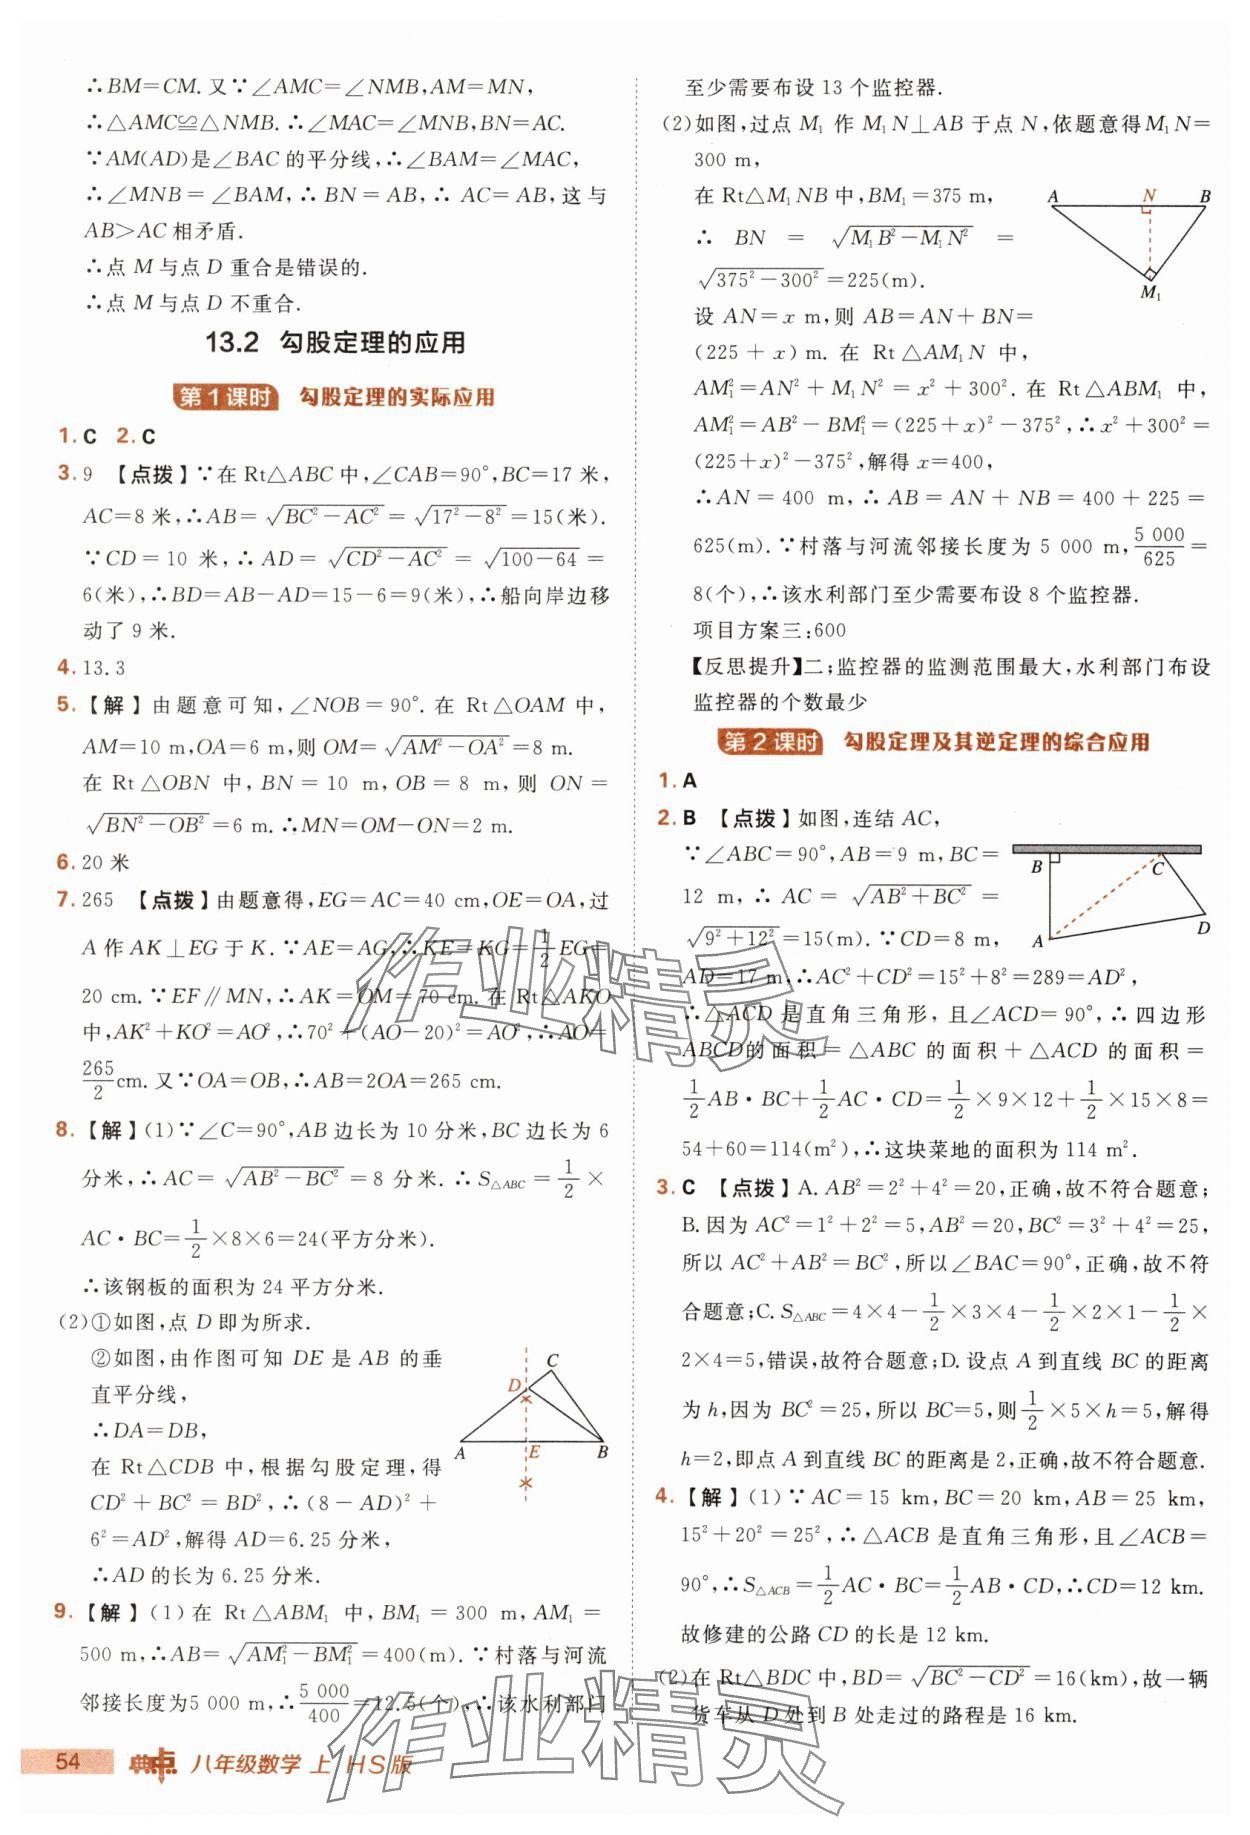 ∴BM=CM. 又∵∠AMC=∠NMB,AM=MN,
∴△AMC≌△NMB. ∴∠MAC=∠MNB,BN=AC.
∵AM(AD)是∠BAC 的平分线,∴∠BAM=∠MAC,
∴∠MNB=∠BAM,∴BN=AB,∴AC=AB,这与
AB>AC 相矛盾.
∴点 M 与点 D 重合是错误的.
∴点 M 与点 D 不重合.
13.2 勾股定理的应用
第1课时 勾股定理的实际应用
1. C 2. C
3. 9 【点拨】∵在 Rt△ABC 中,∠CAB=90°,BC=17 米,
AC=8 米,∴AB=√(BC²-AC²)=√(17²-8²)=15(米).
∵CD=10 米,∴AD=√(CD²-AC²)=√(100-64)=
6(米),∴BD=AB-AD=15-6=9(米),∴船向岸边移
动了 9 米.
4. 13.3
5. 【解】由题意可知,∠NOB=90°. 在 Rt△OAM 中,
AM=10 m,OA=6 m,则 OM=√(AM²-OA²)=8 m.
在 Rt△OBN 中,BN=10 m,OB=8 m,则 ON=
√(BN²-OB²)=6 m. ∴MN=OM-ON=2 m.
6. 20 米
7. 265 【点拨】由题意得,EG=AC=40 cm,OE=OA,过
A 作 AK⊥EG 于 K. ∵AE=AG,∴KE=KG=1/2 EG=
20 cm. ∵EF∥MN,∴AK=OM=70 cm. 在 Rt△AKO
中,AK²+KO²=AO²,∴70²+(AO-20)²=AO²,∴AO=
265/2 cm. 又∵OA=OB,∴AB=2OA=265 cm.
8. 【解】(1)∵∠C=90°,AB 边长为 10 分米,BC 边长为 6
分米,∴AC=√(AB²-BC²)=8 分米. ∴S△ABC=1/2×
AC·BC=1/2×8×6=24(平方分米).
∴该钢板的面积为 24 平方分米.
(2)①如图,点 D 即为所求.
②如图,由作图可知 DE 是 AB 的垂
直平分线,
∴DA=DB,
在 Rt△CDB 中,根据勾股定理,得
CD²+BC²=BD²,∴(8-AD)²+
6²=AD²,解得 AD=6.25 分米,
∴AD 的长为 6.25 分米.
C
D
A
E
B
9. 【解】(1)在 Rt△ABM₁ 中,BM₁=300 m,AM₁=
500 m,∴AB=√(AM₁²-BM₁²)=400(m). ∵村落与河流
邻接长度为5 000 m,∴5 000/400=12.5(个),∴该水利部门
至少需要布设 13 个监控器.
(2)如图,过点 M₁ 作 M₁N⊥AB 于点 N,依题意得M₁N=
300 m,
在 Rt△M₁NB 中,BM₁=375 m,
∴BN=√(M₁B²-M₁N²)=
√(375²-300²)=225(m).
A
N
B
M₁
设 AN=x m,则 AB=AN+BN=
(225+x)m. 在 Rt△AM₁N 中,
AM₁²=AN²+M₁N²=x²+300². 在 Rt△ABM₁ 中,
AM₁²=AB²-BM₁²=(225+x)²-375²,∴x²+300²=
(225+x)²-375²,解得 x=400,
∴AN=400 m,∴AB=AN+NB=400+225=
625(m). ∵村落与河流邻接长度为 5 000 m,5 000/625=
8(个),∴该水利部门至少需要布设 8 个监控器.
项目方案三:600
【反思提升】二;监控器的监测范围最大,水利部门布设
监控器的个数最少
第2课时 勾股定理及其逆定理的综合应用
1. A
2. B 【点拨】如图,连结 AC,
∵∠ABC=90°,AB=9 m,BC=
12 m,∴AC=√(AB²+BC²)=
√(9²+12²)=15(m). ∵CD=8 m,
B
C
A
D
AD=17 m,∴AC²+CD²=15²+8²=289=AD²,
∴△ACD 是直角三角形,且∠ACD=90°,∴四边形
ABCD的面积=△ABC 的面积+△ACD 的面积=
1/2 AB·BC+1/2 AC·CD=1/2×9×12+1/2×15×8=
54+60=114(m²),∴这块菜地的面积为 114 m².
3. C 【点拨】A. AB²=2²+4²=20,正确,故不符合题意;
B. 因为 AC²=1²+2²=5,AB²=20,BC²=3²+4²=25,
所以 AC²+AB²=BC²,所以∠BAC=90°,正确,故不符
合题意;C. S△ABC=4×4-1/2×3×4-1/2×2×1-1/2×
2×4=5,错误,故符合题意;D. 设点 A 到直线 BC 的距离
为 h,因为 BC²=25,所以 BC=5,则1/2×5×h=5,解得
h=2,即点 A 到直线 BC 的距离是 2,正确,故不符合题意.
4. 【解】(1)∵AC=15 km,BC=20 km,AB=25 km,
15²+20²=25²,∴△ACB 是直角三角形,且∠ACB=
90°,∴S△ACB=1/2 AC·BC=1/2 AB·CD,∴CD=12 km.
故修建的公路 CD 的长是 12 km.
(2)在 Rt△BDC 中,BD=√(BC²-CD²)=16(km),故一辆
货车从 D 处到 B 处走过的路程是 16 km.
作业精灵
作业精灵
54 典中点 八年级数学 上 HS版